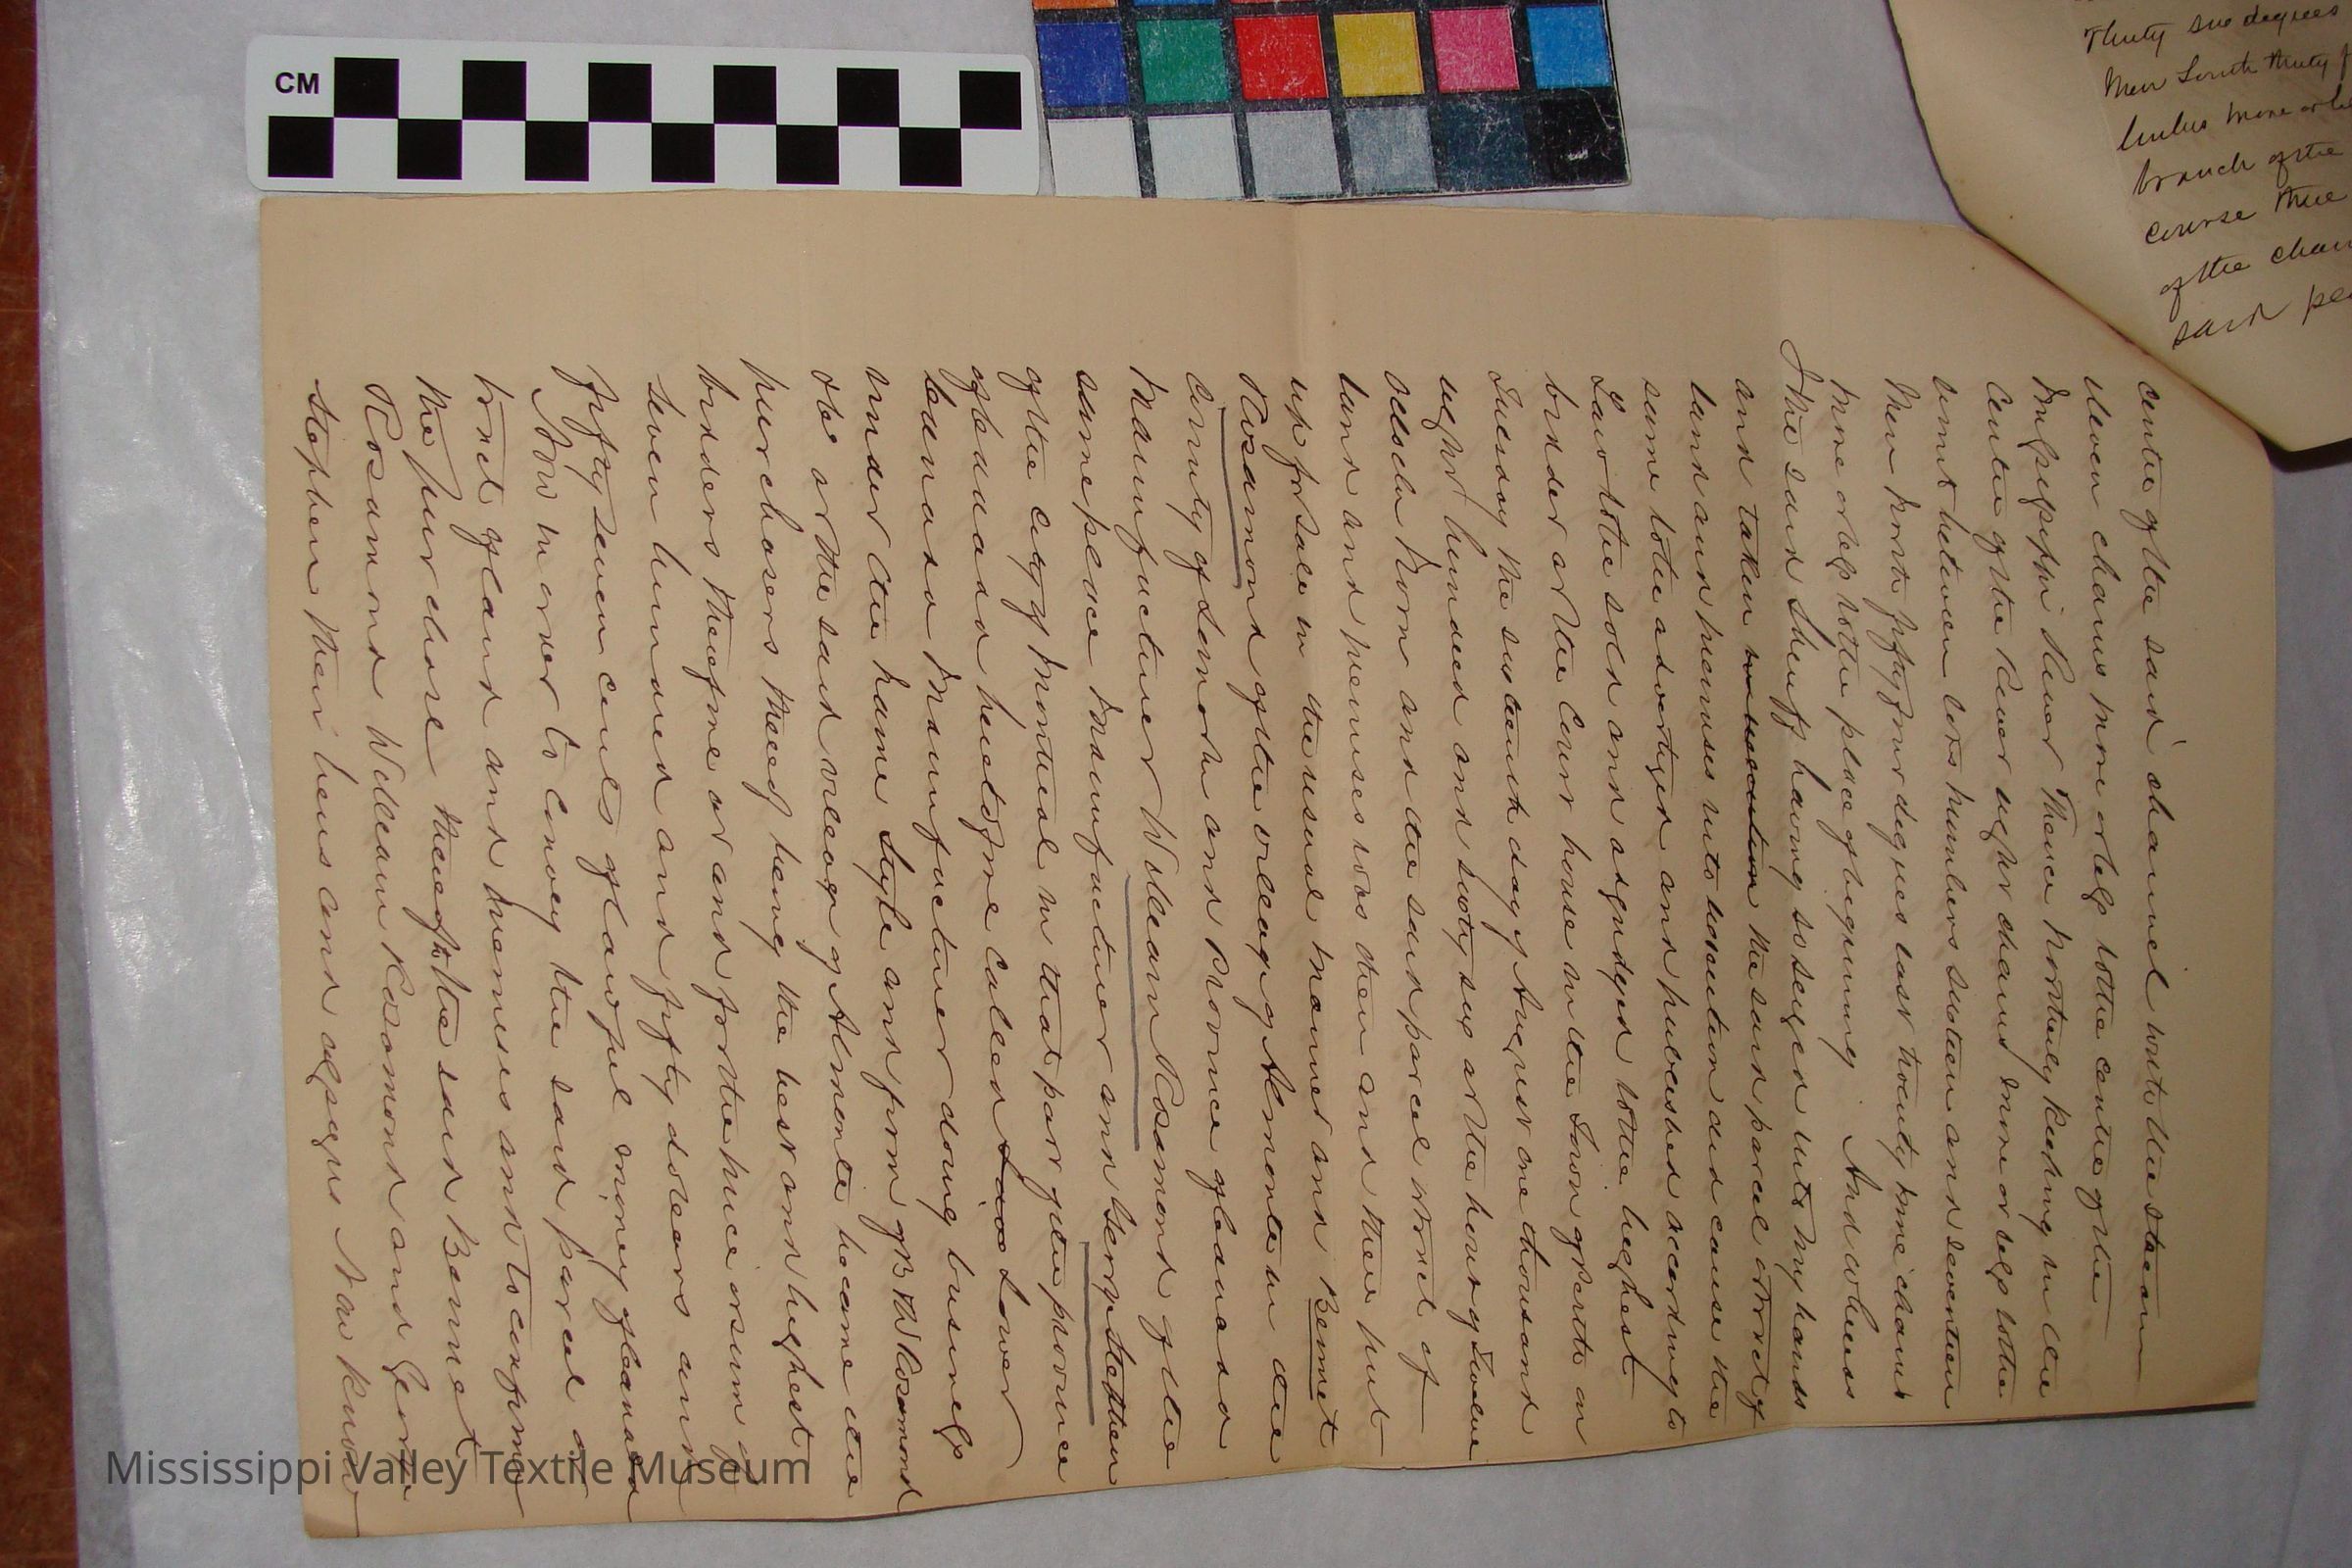 CM
Thirty six degrees
then South thirty
links more or le
branch of the
course thre
of the chan
said
centre of the said channel with the steam
eleven chains more or less to the centre of the
Mississippi River Thence northerly keeping in the
Centre of the River eight chains more or less to the
limit between lots numbers sixteen and seventeen
then North fifty four degrees east twenty nine chains
more or less to the place of beginning And whereas
I the said Sheriff having so seized into my hands
and taken in execution the said parcel or tract of
land and premises into execution did cause the
same to be advertised and published according to
Law to be sold and adjudged to the highest
bidder at the Court house in the Town of Perth on
Tuesday the sixteenth day August one thousand
eight hundred and sixty six at the hour of Twelve
oclock Noon and the said parcel or tract of
land and premises was then and there put
up for sale in the usual manner and Bennet
Rosamond of the village of Almonte in the
County of Lanark and Province of Canada
Manufacturer William Rosamond of the
same place Manufacturer and George Stephen
of the City of Montreal in that part of the province
of Canada heretofore called Lower
Canada Manufacturer doing business
under the name Style and firm of B & W Rosamond
& Co at the said village of Almonte became the
purchasers thereof being the best and highest
bidders therefore at and for the price or sum of
Seven hundred and fifty dollars and
fifty seven cents of lawful money of Canada
Now in order to convey the said parcel or
tract of land and premises and to confirm
the purchase thereof to the said Bennet
Rosamond William Rosamond and George
Stephen their heirs and assigns Now know
Mississippi Valley Textile Museum